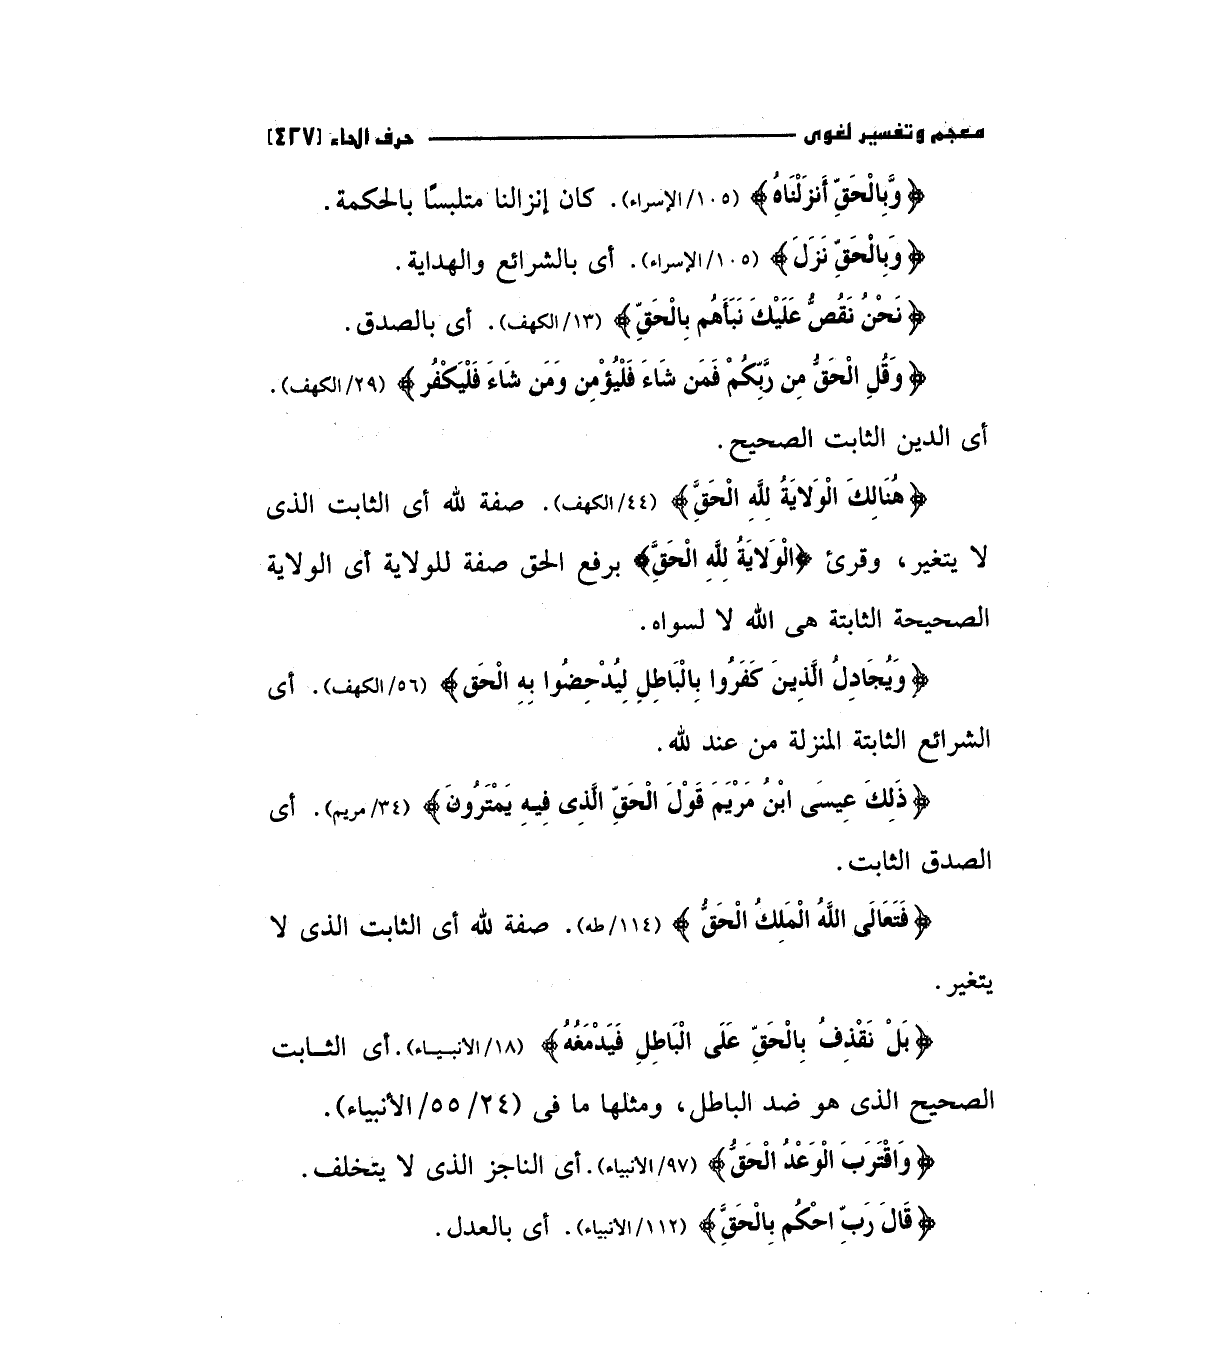 معجم وتفسير لغوى — حرف الحاء [٤٢٧]
﴿وَبِالْحَقِّ أَنزَلْنَاهُ﴾ (١٠٥/الإسراء). كان إنزالنا متلبسًا بالحكمة.
﴿وَبِالْحَقِّ نَزَلَ﴾ (١٠٥/الإسراء). أى بالشرائع والهداية.
﴿نَحْنُ نَقُصُّ عَلَيْكَ نَبَأَهُم بِالْحَقِّ﴾ (١٣/الكهف). أى بالصدق.
﴿وَقُلِ الْحَقُّ مِن رَّبِّكُمْ فَمَن شَاءَ فَلْيُؤْمِن وَمَن شَاءَ فَلْيَكْفُر﴾ (٢٩/الكهف).
أى الدين الثابت الصحيح.
﴿هُنَالِكَ الْوَلايَةُ لِلَّهِ الْحَقِّ﴾ (٤٤/الكهف). صفة لله أى الثابت الذى
لا يتغير، وقرئ ﴿الْوَلايَةُ لِلَّهِ الْحَقِّ﴾ برفع الحق صفة للولاية أى الولاية
الصحيحة الثابتة هى الله لا لسواه.
﴿وَيُجَادِلُ الَّذِينَ كَفَرُوا بِالْبَاطِلِ لِيُدْحِضُوا بِهِ الْحَق﴾ (٥٦/الكهف). أى
الشرائع الثابتة المنزلة من عند لله.
﴿ذَلِكَ عِيسَى ابْنُ مَرْيَمَ قَوْلَ الْحَقِّ الَّذِى فِيهِ يَمْتَرُونَ﴾ (٣٤/مريم). أى
الصدق الثابت.
﴿فَتَعَالَى اللَّهُ الْمَلِكُ الْحَقُّ﴾ (١١٤/طه). صفة لله أى الثابت الذى لا
يتغير.
﴿بَلْ نَقْذِفُ بِالْحَقِّ عَلَى الْبَاطِلِ فَيَدْمَغُهُ﴾ (١٨/الأنبياء). أى الثابت
الصحيح الذى هو ضد الباطل، ومثلها ما فى (٢٤/٥٥/الأنبياء).
﴿وَاقْتَرَبَ الْوَعْدُ الْحَقُّ﴾ (٩٧/الأنبياء). أى الناجز الذى لا يتخلف.
﴿قَالَ رَبِّ احْكُم بِالْحَقِّ﴾ (١١٢/الأنبياء). أى بالعدل.